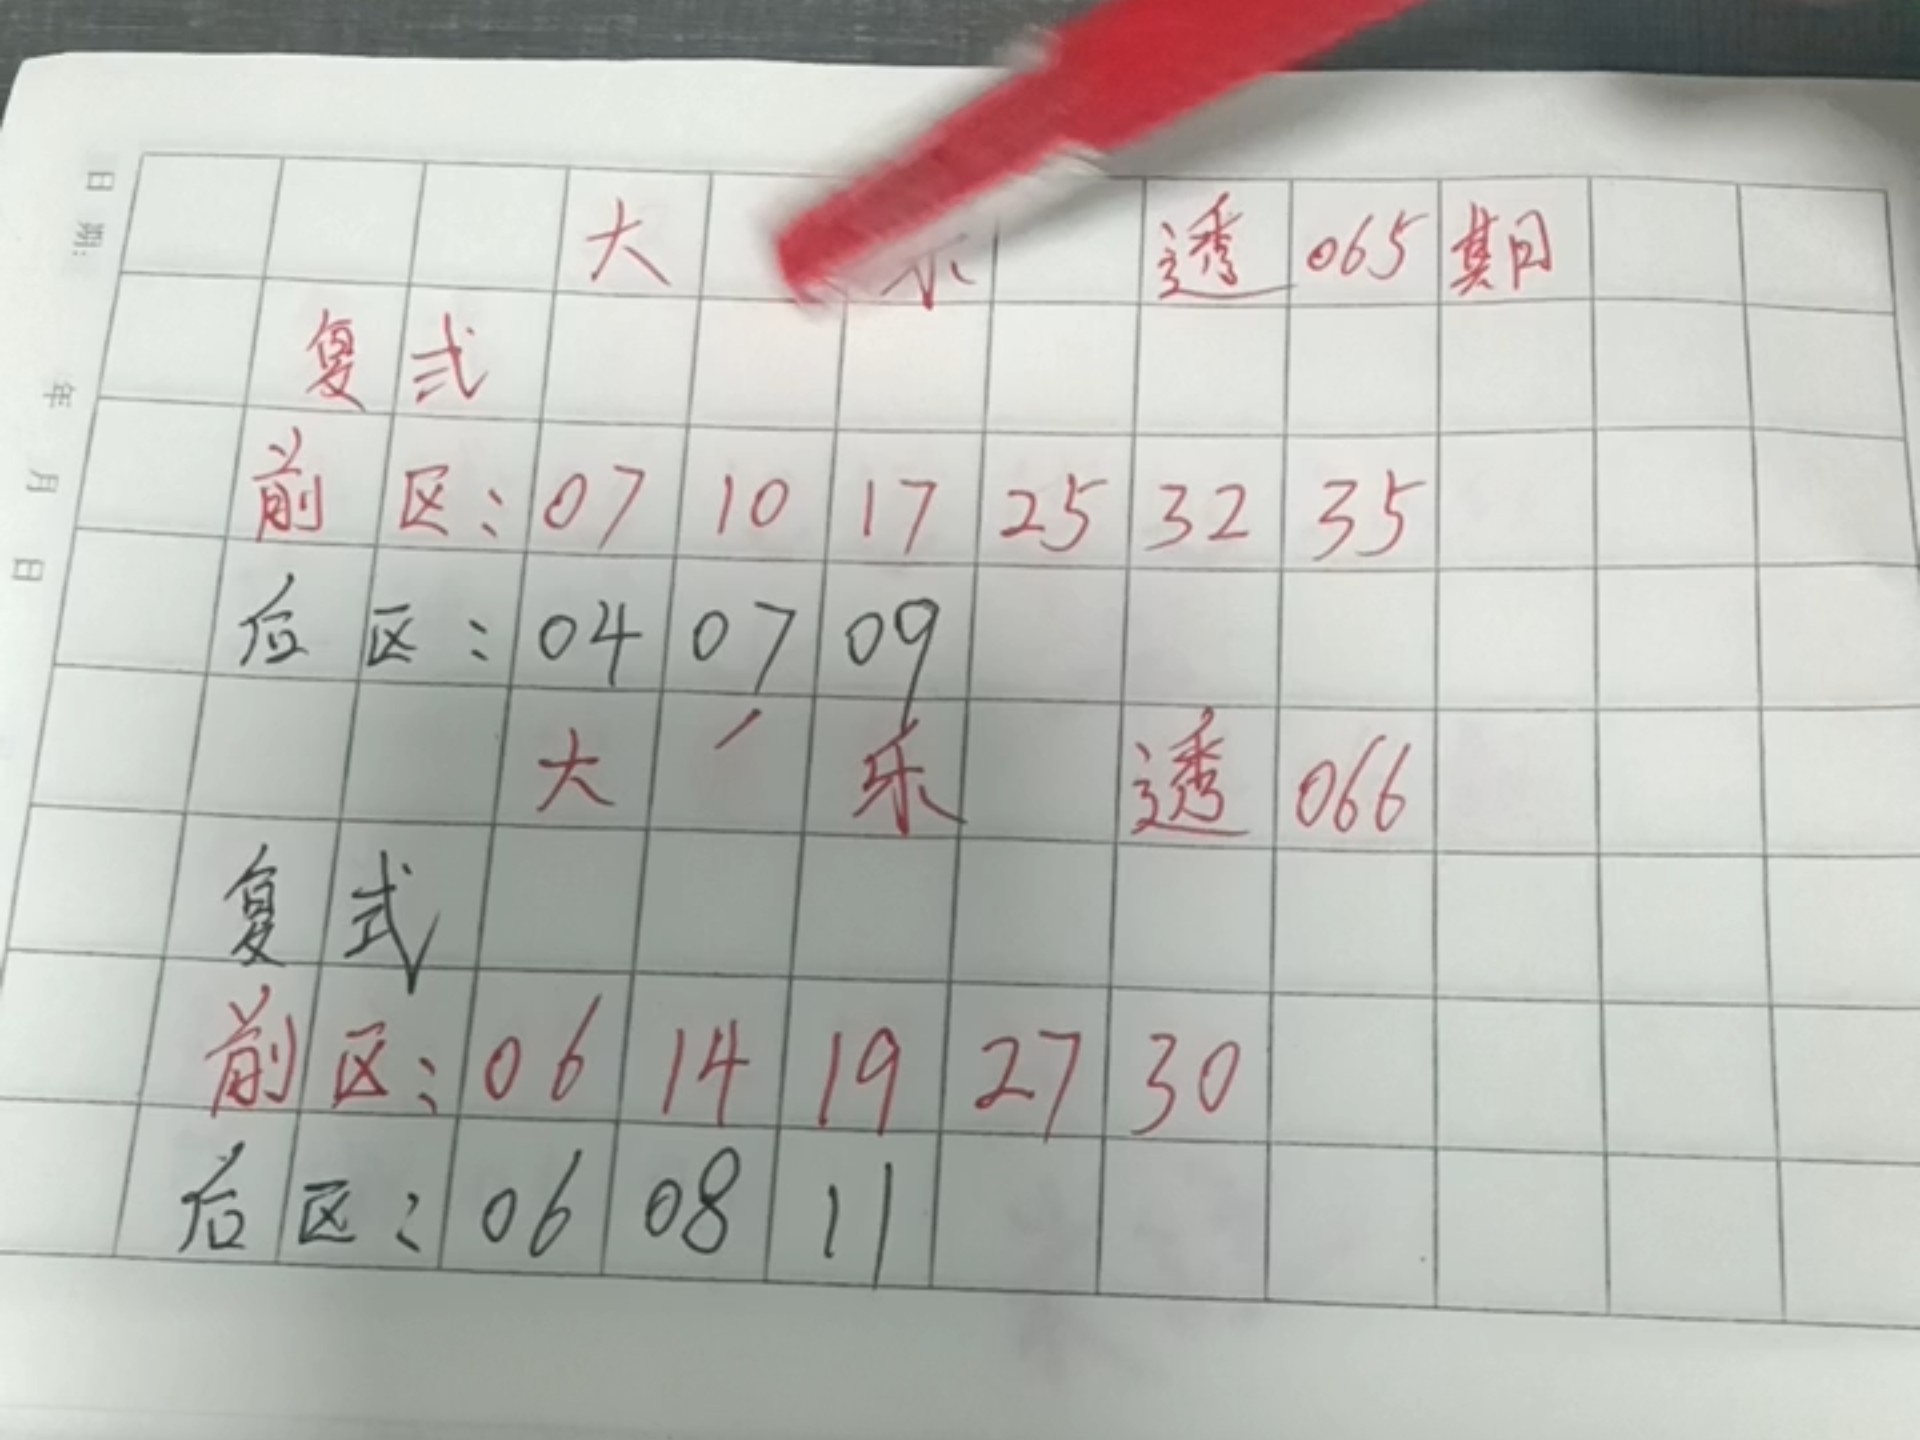 大 乐 透 065期
复式
前区: 07 10 17 25 32 35
后区: 04 07 09
大 乐 透 066
复式
前区: 06 14 19 27 30
后区: 06 08 11
日期: 年 月 日